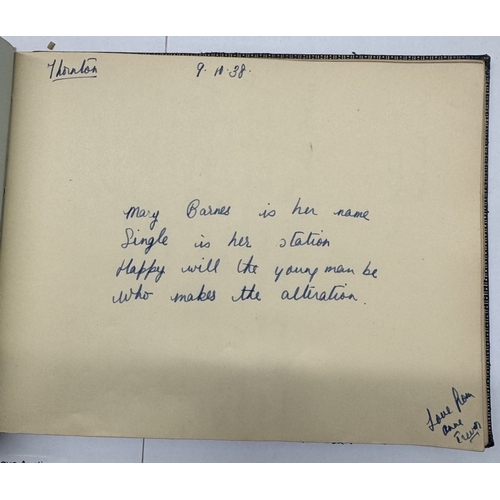 Thornton 9.10.38.
Mary Barnes is her name
Single is her station
Happy will the young man be
Who makes the alteration.
Love from
Anne
Trevor